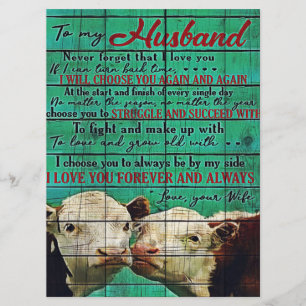 To my Husband
Never forget that I love you
If I can turn back time,
I WILL CHOOSE YOU AGAIN AND AGAIN
At the start and finish of every single day
No matter the season, no matter the year
choose you to STRUGGLE AND SUCCEED WITH
To fight and make up with
To love and grow old with
I choose you to always be by my side
I LOVE YOU FOREVER AND ALWAYS
Love, your Wife